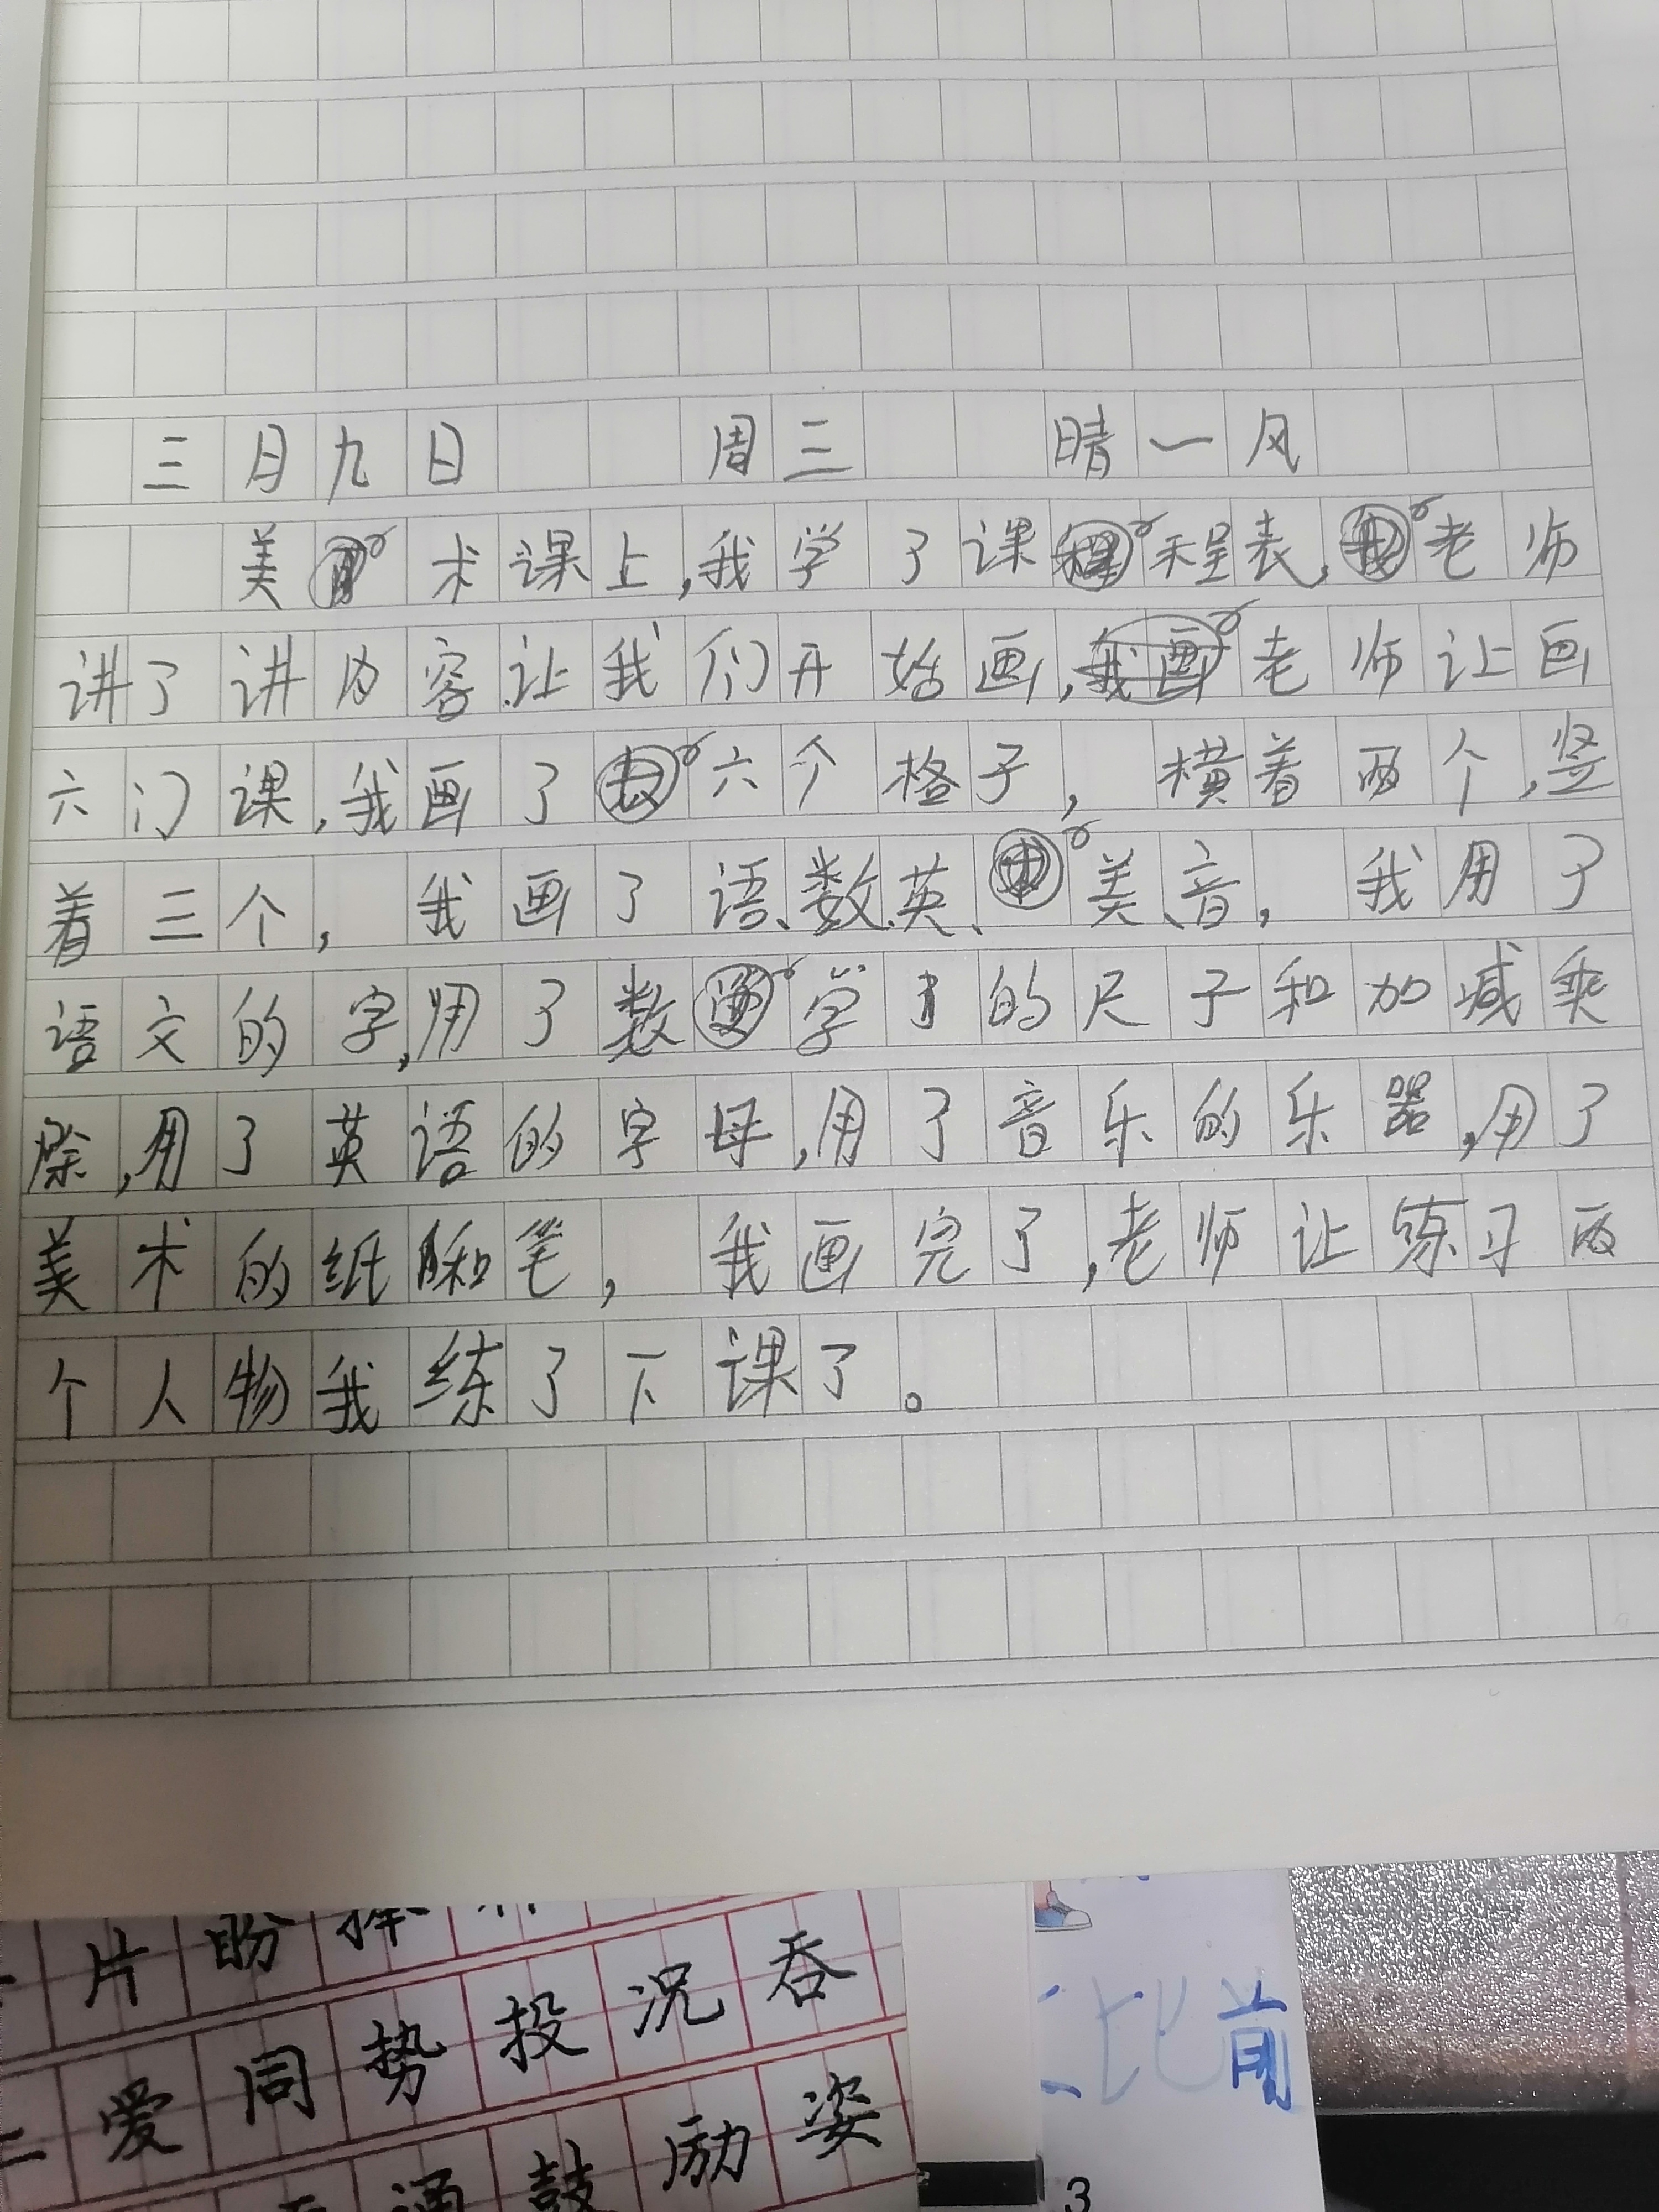 三月九日 周三 晴一风
美术课上,我学了课程表,老师
讲了讲内容.让我们开始画,老师让画
六门课,我画了六个格子,横着两个,竖
着三个,我画了语、数、英、美、音,我用了
语文的字,用了数学的尺子和加减乘
除,用了英语的字母,用了音乐的乐器,用了
美术的纸和笔,我画完了,老师让练习两
个人物我练了下课了。
片盼捧
爱同势投况吞
鼓励姿
比前
3